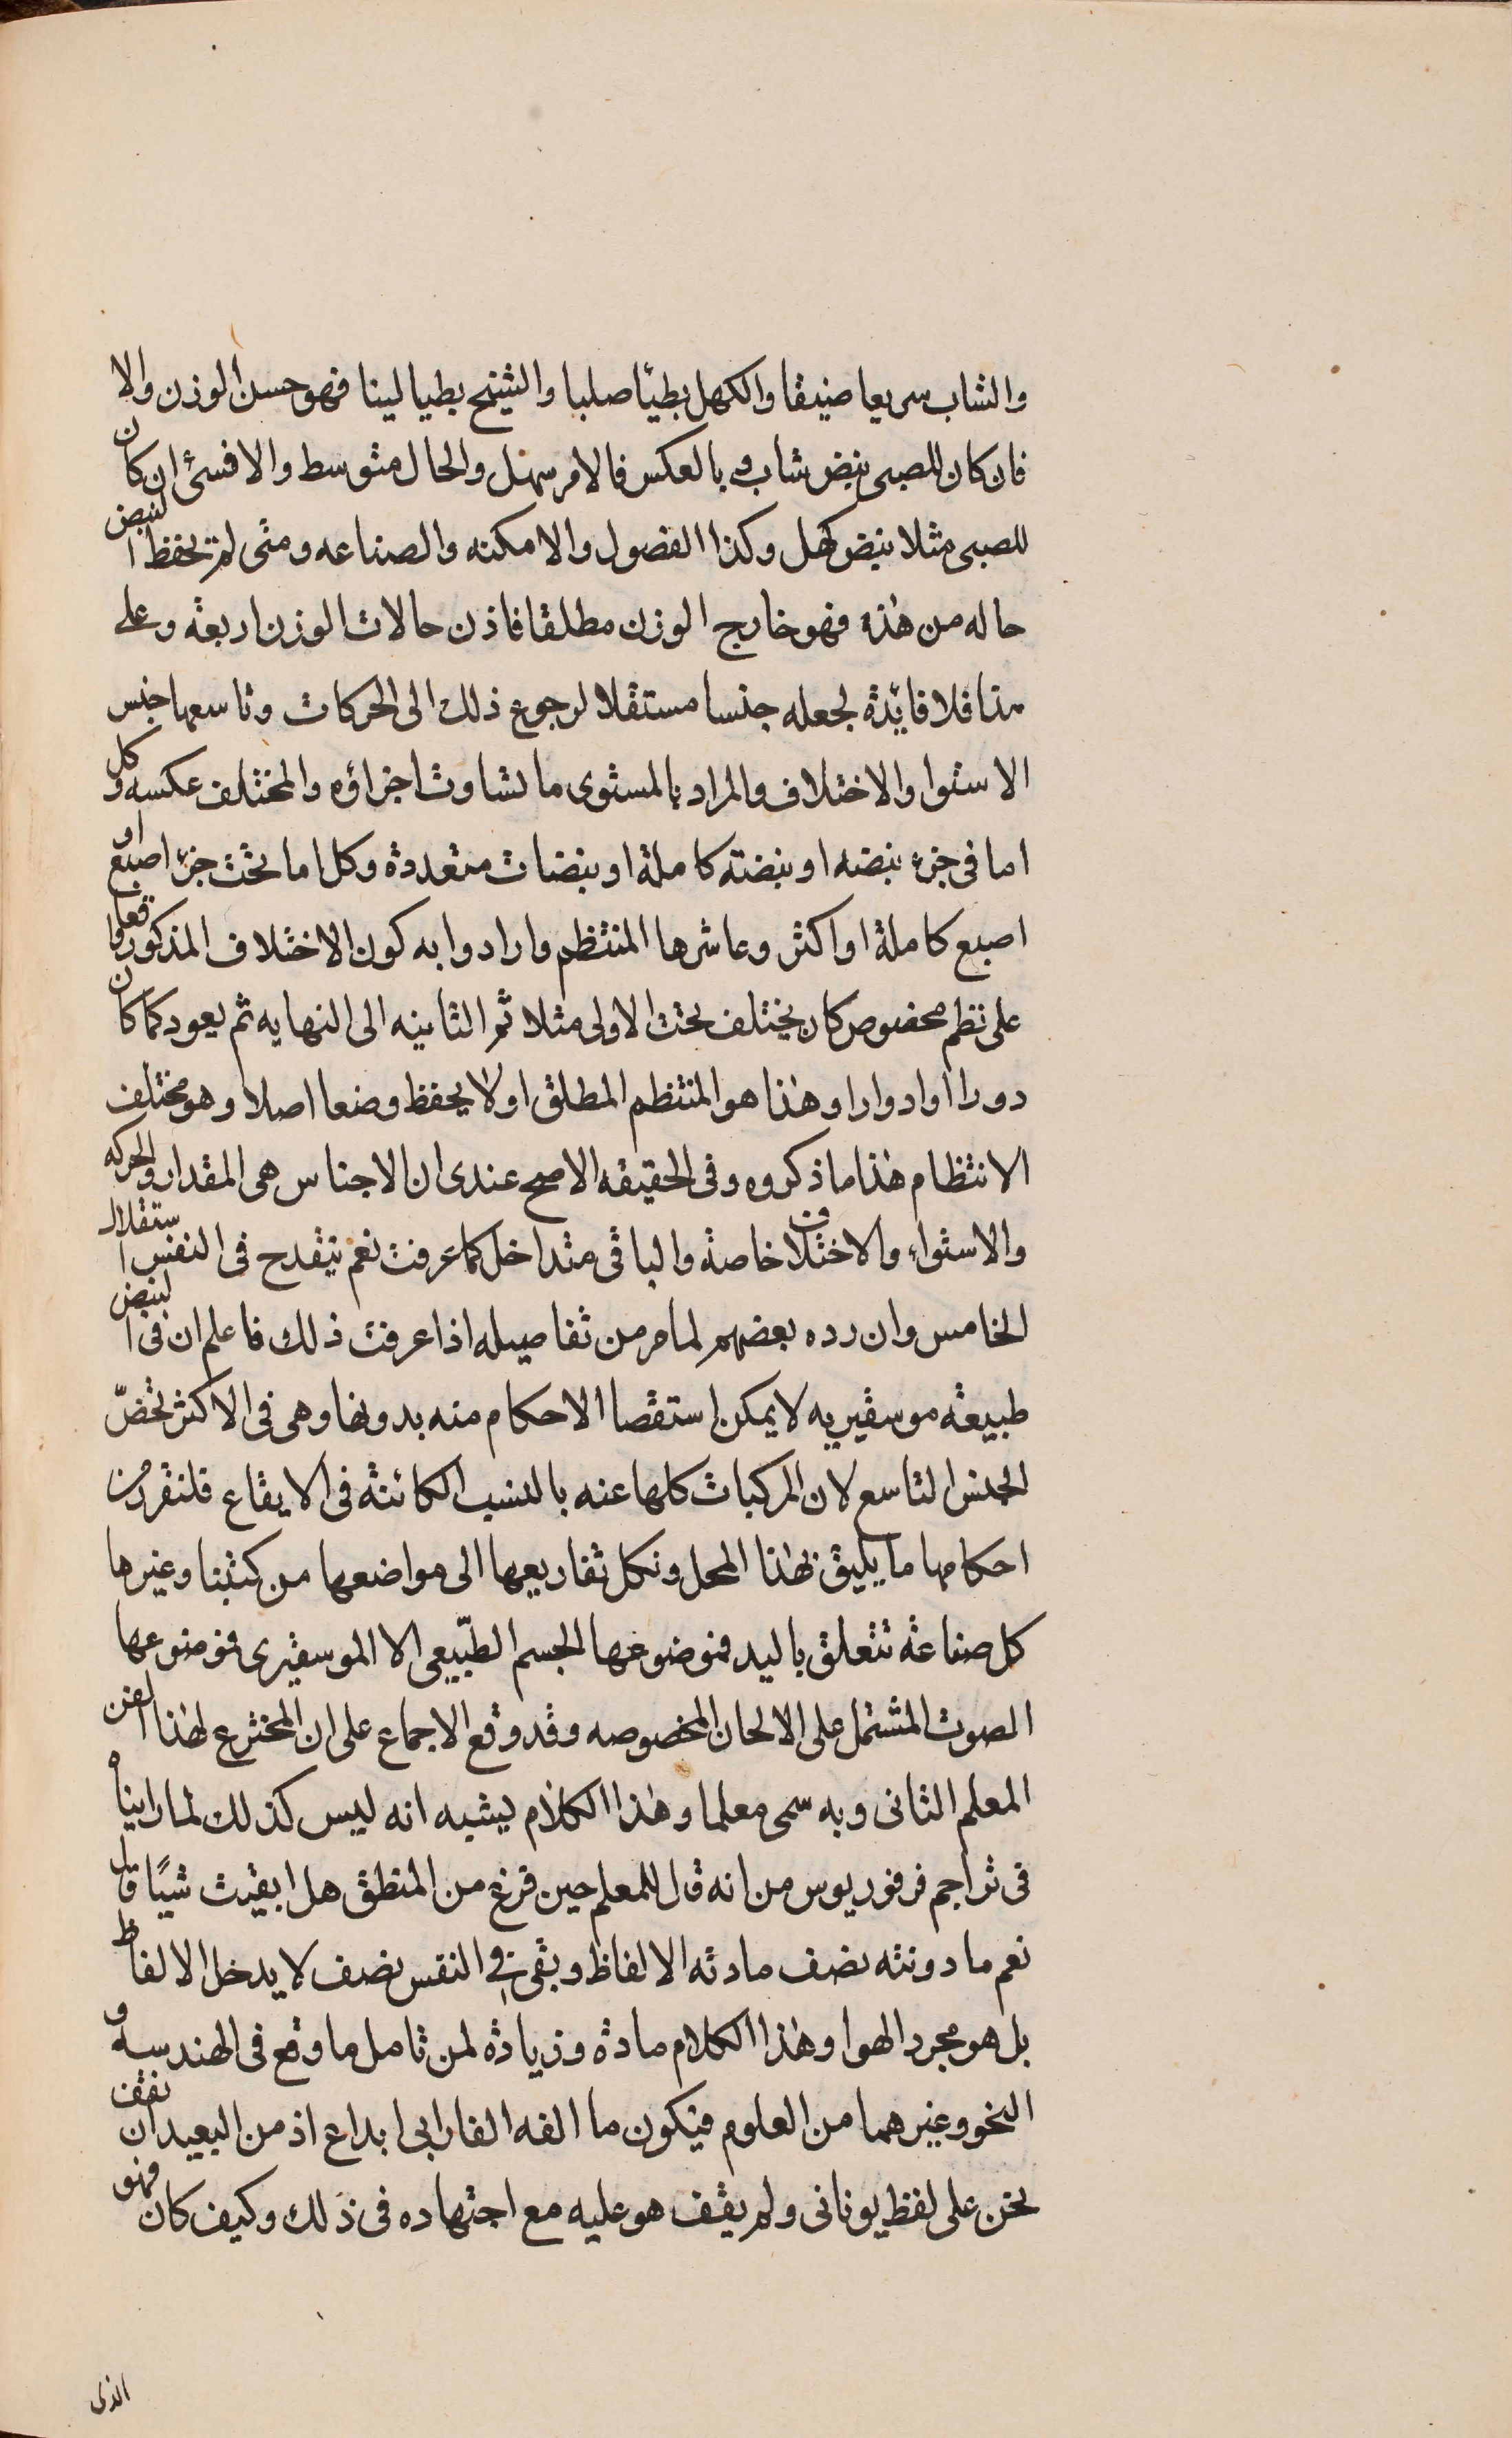 والشاب سريعا ضيقا والكهل بطيًا صلبا والشيخ بطيا لينا فهو حسن الوزن والا
فان كان للصبى نبض شاب او بالعكس فالامر سهل والحال متوسط والا فسئ ان كان
للصبى مثلا نبض كهل وكذا الفصول والامكنه والصناعه ومتى لم يحفظ النبض
حاله من هذه فهو خارج الوزن مطلقا فاذن حالات الوزن اربعة وعلى
هذا فلا فايدة لجعله جنسا مستقلا لرجوع ذلك الى الحركات وتاسعها جنس
الاستوا والاختلاف والمراد بالمستوى ما تشاوت اجزاؤه والمختلف عكسه وكل
اما فى جزء نبضه او نبضته كاملة او نبضات متعددة وكل اما تحت جزء اصبع او
اصبع كاملة او اكثر وعاشرها المنتظم وارادوا به كون الاختلاف المذكور واقعا
على نظم مخصوص كان يختلف تحت الاولى مثلا ثم الثانيه الى النهايه ثم يعود كما كان
دورا او ادوارا وهذا هو المنتظم المطلق او لا يحفظ وضعا اصلا وهو مختلف
الانتظام هذا ما ذكروه وفى الحقيقه الاصح عندى ان الاجناس هى المقدار والحركه
والاستواء والاختلاف خاصة والباقى متداخل كما عرفت نعم ينقدح فى النفس استقلال
الخامس وان رده بعضهم لما مر من تفاصيله اذا عرفت ذلك فاعلم ان فى النبض
طبيعة موسقيريه لا يمكن استقصا الاحكام منه بدونها وهى فى الاكثر تخصّ
الجنس التاسع لان المركبات كلها عنه بالنسب الكائنة فى الايقاع فلنقرر من
احكامها ما يليق بهذا المحل ونكل تفاريعها الى مواضعها من كتبنا وغيرها
كل صناعة تتعلق باليد فموضوعها الجسم الطبّيعى الا الموسقيرى فموضوعها
الصوت المشتمل على الالحان المخصوصه وقد وقع الاجماع على ان المخترع لهذا الفن
المعلم الثانى وبه سمى معلما وهذا الكلام يشبه انه ليس كذلك لما رايناه
فى تراجم فرفوريوس من انه قال للمعلم حين فرغ من المنطق هل ابقيت شيًا قال
نعم ما دونته نصف مادته الالفاظ وبقى فى النفس نصف لا يدخل الالفاظ
بل هو مجرد الهوا وهذا الكلام مادة وزيادة لمن تامل ما وقع فى الهندسه و
النحو وغيرهما من العلوم فيكون ما الفه الفارابى ابداع اذ من البعيد ان نقف
نحن على لفظ يونانى ولم يقف هو عليه مع اجتهاده فى ذلك وكيف كان فهو
الذى